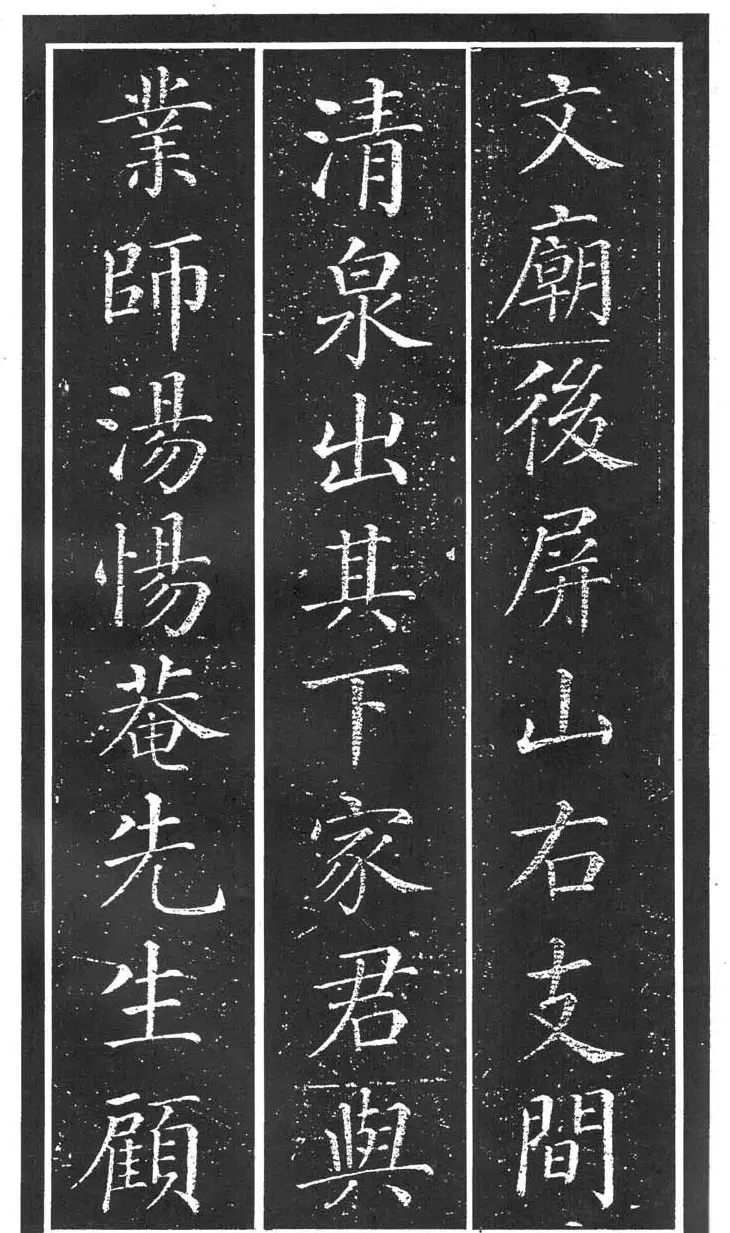 文廟後屏山右支間
清泉出其下家君與
業師湯惕菴先生顧